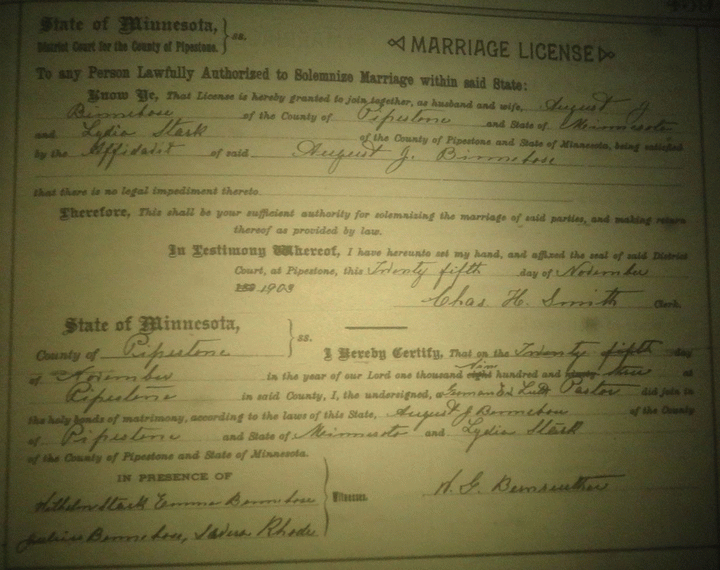 State of Minnesota,
District Court for the County of Pipestone. } ss.
MARRIAGE LICENSE
To any Person Lawfully Authorized to Solemnize Marriage within said State:
Know Ye, That License is hereby granted to join together, as husband and wife, August J
Binnebose of the County of Pipestone and State of Minnesota
and Lydia Stark of the County of Pipestone and State of Minnesota, being satisfied
by the Affidavit of said August J. Binnebose
that there is no legal impediment thereto.
Therefore, This shall be your sufficient authority for solemnizing the marriage of said parties, and making return
thereof as provided by law.
In Testimony Whereof, I have hereunto set my hand, and affixed the seal of said District
Court, at Pipestone, this Twenty fifth day of November
1903
Chas H. Smith Clerk.
State of Minnesota,
County of Pipestone } ss.
I Hereby Certify, That on the Twenty fifth day
of November in the year of our Lord one thousand Nine hundred and three at
Pipestone in said County, I, the undersigned, a German Ev Luth Pastor did join in
the holy bonds of matrimony, according to the laws of this State, August J Bonnebose of the County
of Pipestone and State of Minnesota and Lydia Stark
of the County of Pipestone and State of Minnesota.
IN PRESENCE OF
Wilhelm Stark Emma Bonnebose
Julius Bonnebose, Rhode
Witnesses.